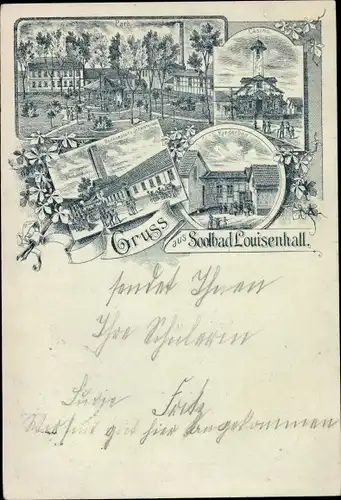 Park
Gruss aus Soolbad Louisenhall.
sendet Ihnen
Ihre Schülerin
Fritz
gut hier angekommen